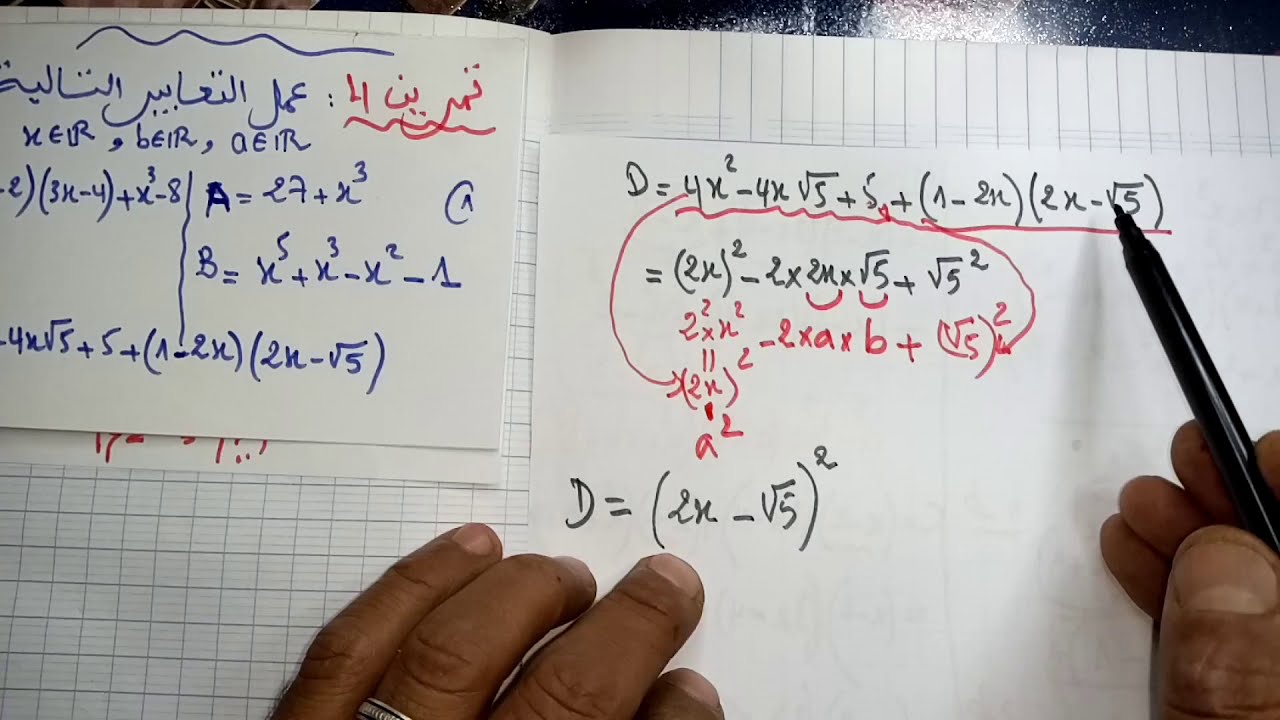 تمرين 4 : عمل التعابير التالية
x∈ℝ , b∈ℝ , a∈ℝ
-2)(3x-4)+x³-8
A = 27 + x³
①
B = x⁵ + x³ - x² - 1
-4x√5 + 5 + (1-2x)(2x-√5)
D = 4x² - 4x√5 + 5 + (1-2x)(2x-√5)
= (2x)² - 2×2x×√5 + √5²
2²×x² - 2×a×b + (√5)²
=
(2x)²
a²
D = (2x - √5)²